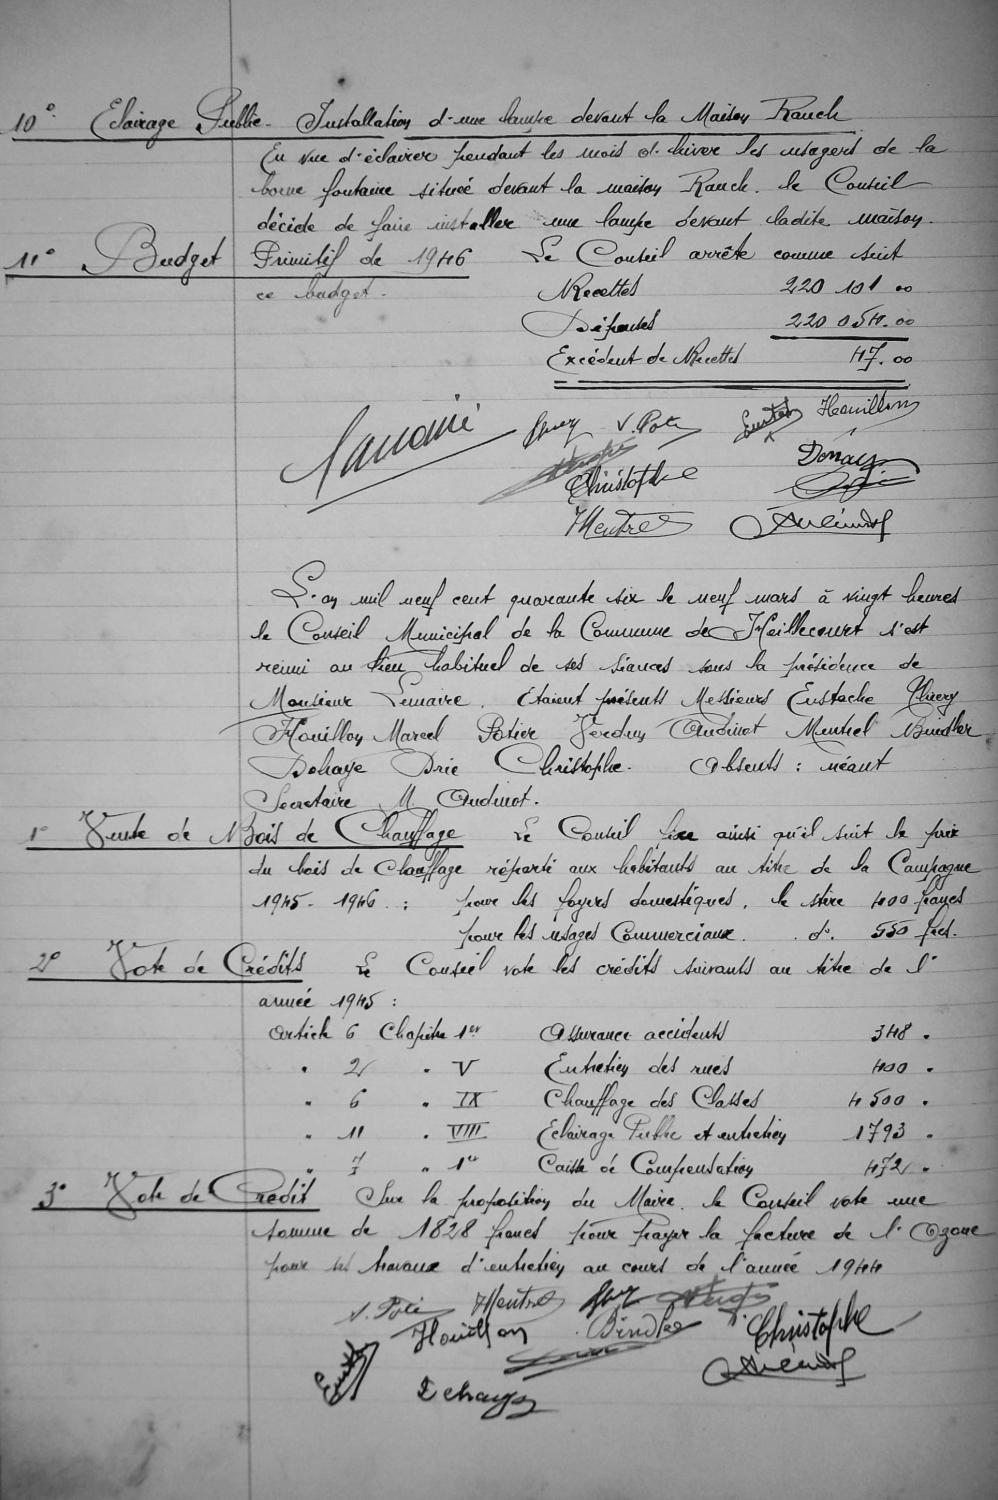 10° Eclairage Public - Installation d'une lampe devant la Maison Rauch
En vue d'éclairer pendant les mois d'hiver les usagers de la
borne fontaine située devant la maison Rauch. le Conseil
décide de faire installer une lampe devant ladite maison.
11° Budget Primitif de 1946 Le Conseil arrête comme suit
ce budget.
Recettes 220 101 00
Dépenses 220 054.00
Excédent de Recettes 47.00
V. Poti Houillon
Christophe
Mentrel
L'an mil neuf cent quarante six le neuf mars à vingt heures
le Conseil Municipal de la Commune de Heillecourt s'est
réuni au lieu habituel de ses séances sous la présidence de
Monsieur Lemaire. Etaient présents Messieurs Eustache Thiery
Houillon Marcel Potier Verdun Oudinot Mentrel Bindler
Dehaye Brie Christophe. Absents : néant
Secretaire M Oudinot.
1° Vente de Bois de Chauffage Le Conseil fixe ainsi qu'il suit le prix
du bois de chauffage réparti aux habitants au titre de la Campagne
1945-1946 : pour les foyers domestiques, le stère 400 francs
pour les usages Commerciaux. d°. 550 frcs.
2° Vote de Crédits Le Conseil vote les crédits suivants au titre de l'
année 1945 :
Article 6 Chapitre 1er Assurance accidents 348 .
" 2 " V Entretien des rues 400 .
" 6 " IX Chauffage des Classes 4 500 .
" 11 " VIII Eclairage Public et entretien 1793 .
" 7 " 1er Caisse de Compensation 472 .
3° Vote de Crédit Sur la proposition du Maire, le Conseil vote une
somme de 1828 francs pour payer la facture de l'Ozone
pour les travaux d'entretien au cours de l'année 1944
V. Poti Mentrel
Houillon Bindler Christophe
Dehaye